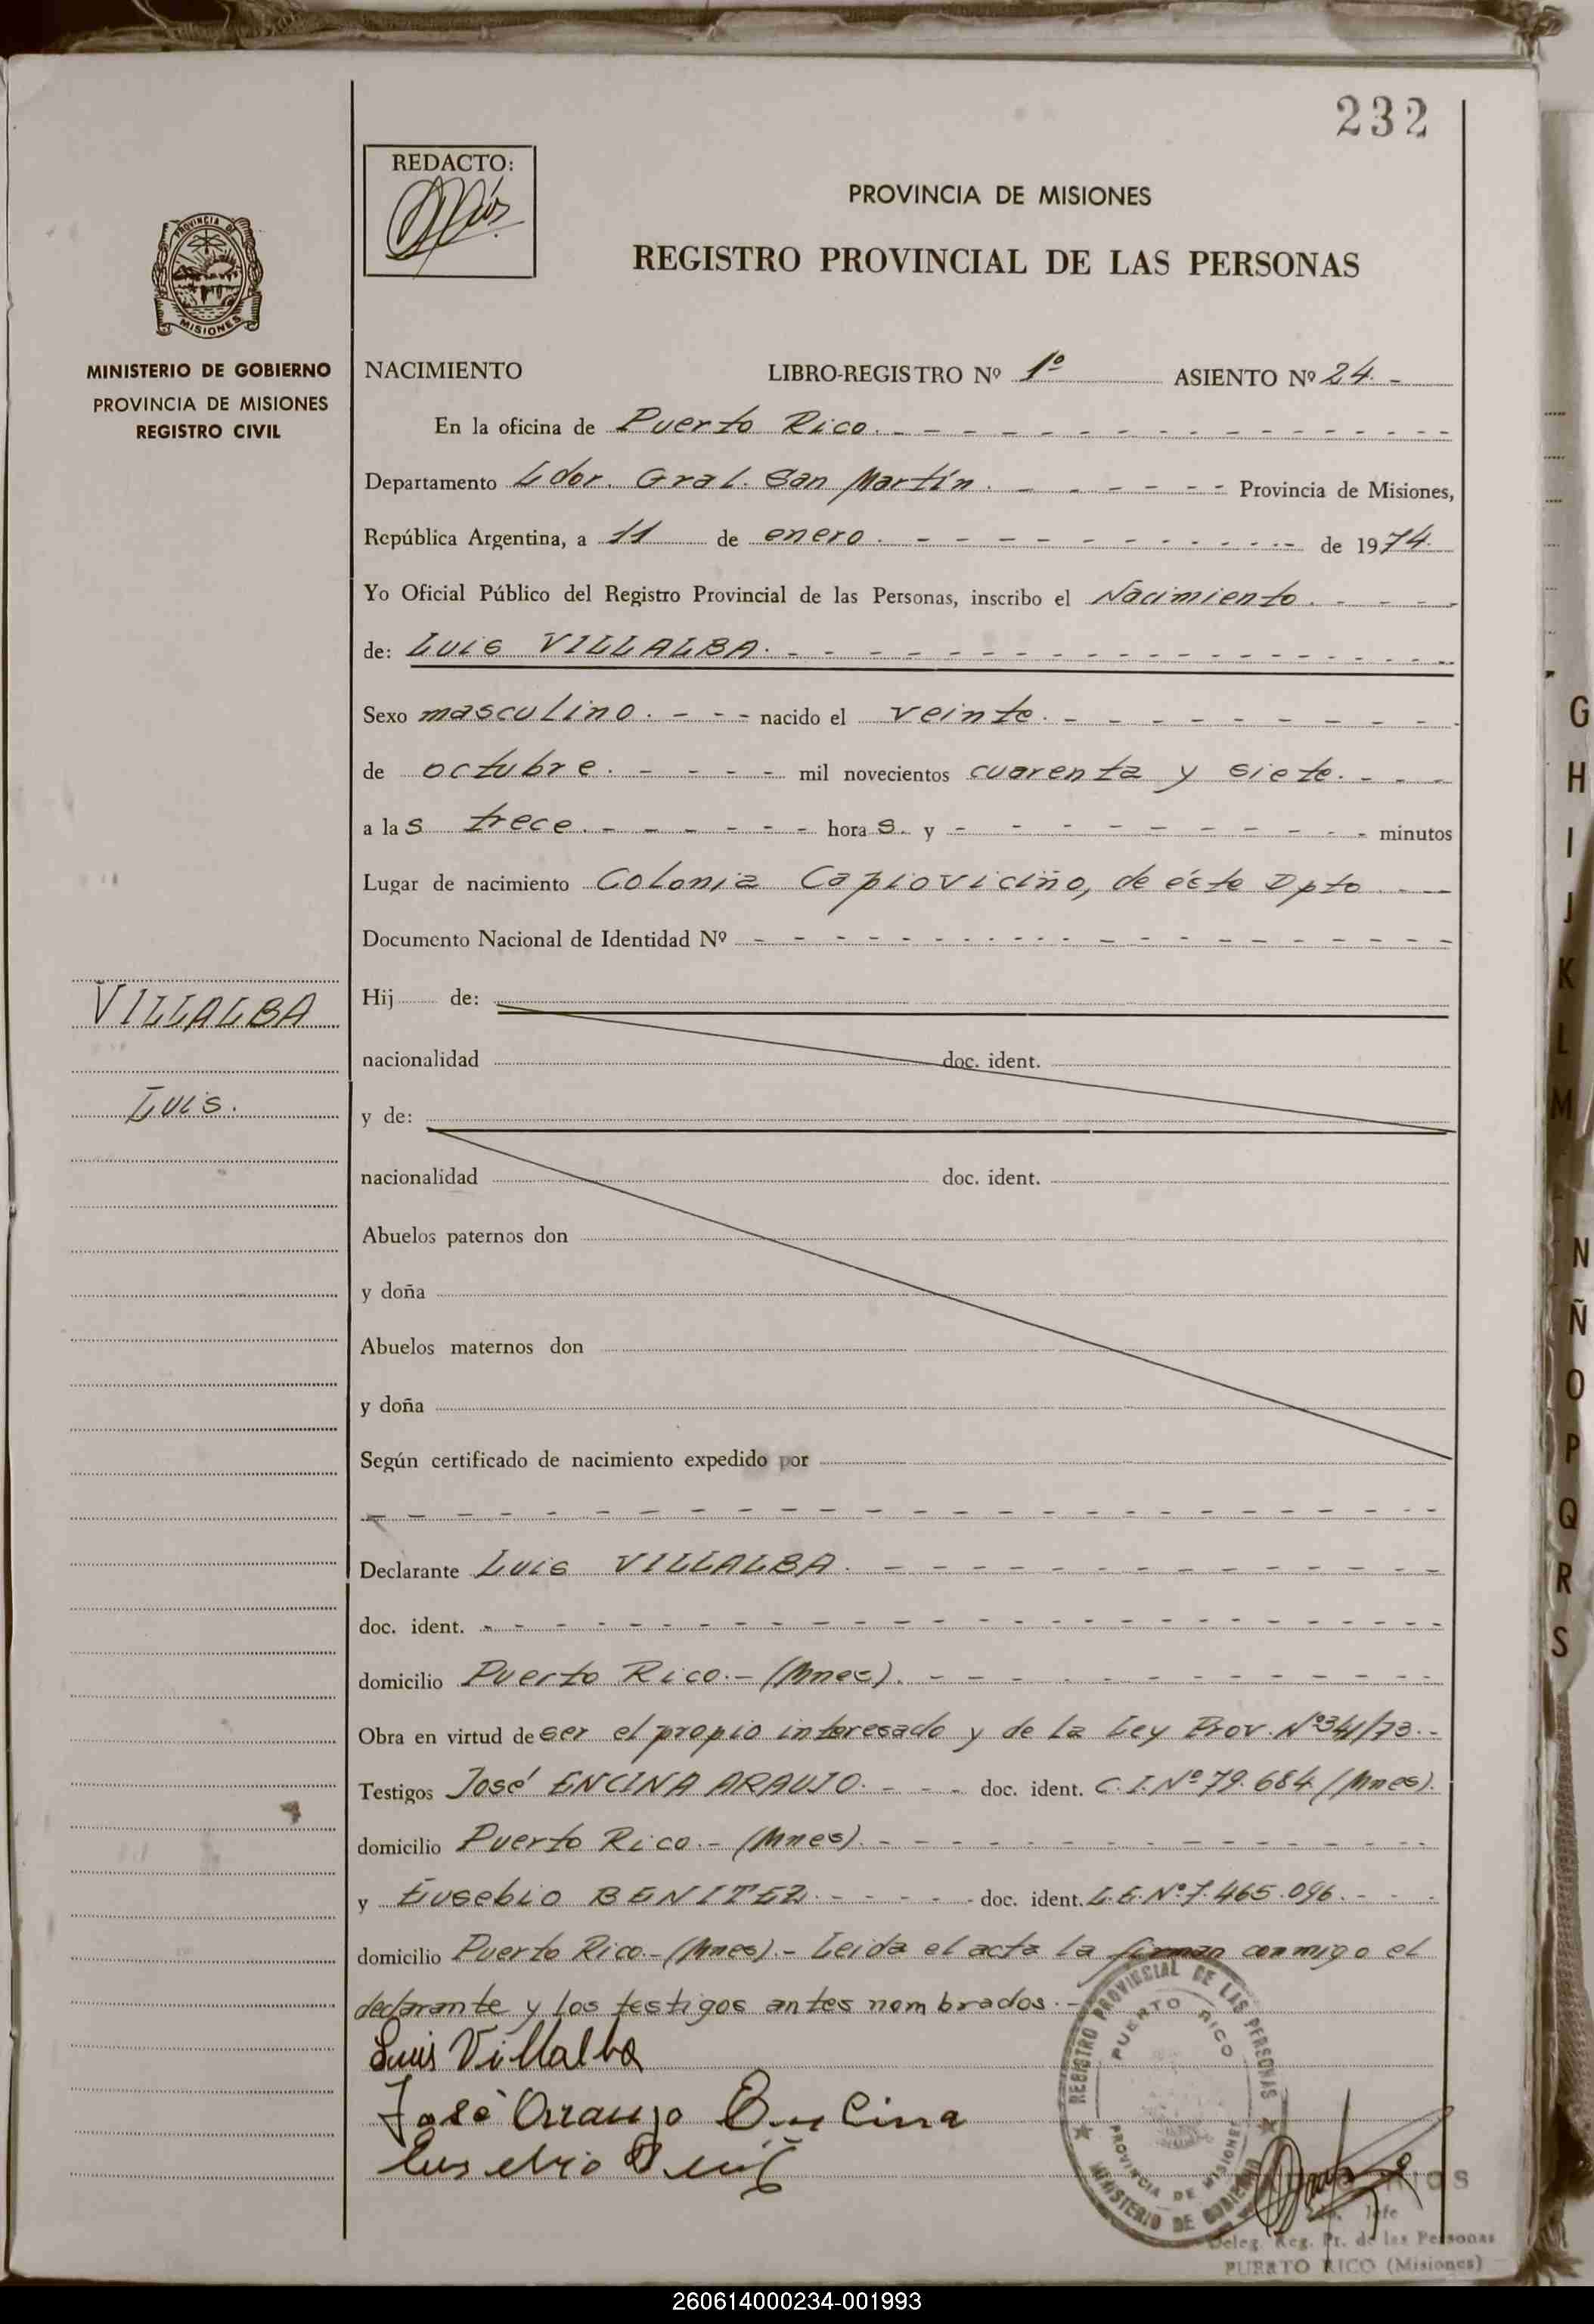 232
REDACTO:
PROVINCIA DE MISIONES
REGISTRO PROVINCIAL DE LAS PERSONAS
PROVINCIA DE
MISIONES
MINISTERIO DE GOBIERNO
PROVINCIA DE MISIONES
REGISTRO CIVIL
NACIMIENTO LIBRO-REGISTRO Nº 1º ASIENTO Nº 24.-
En la oficina de Puerto Rico.
Departamento Ldor. Gral. San Martín. Provincia de Misiones,
República Argentina, a 11 de enero. de 1974.
Yo Oficial Público del Registro Provincial de las Personas, inscribo el Nacimiento.
de: Luis VILLALBA.
Sexo masculino. nacido el veinte.
de octubre. mil novecientos cuarenta y siete.
a las trece. horas. y minutos
Lugar de nacimiento Colonia Capioviciño, de éste Dpto
Documento Nacional de Identidad Nº
VILLALBA
Luis.
Hij de:
nacionalidad doc. ident.
y de:
nacionalidad doc. ident.
Abuelos paternos don
y doña
Abuelos maternos don
y doña
Según certificado de nacimiento expedido por
Declarante Luis VILLALBA.
doc. ident.
domicilio Puerto Rico.- (Mnes).
Obra en virtud de ser el propio interesado y de la Ley Prov. Nº341/73.-
Testigos José ENCINA ARAUJO. doc. ident. C.I.Nº 79.684 (Mnes).
domicilio Puerto Rico.- (Mnes).
y Eusebio BENITEZ. doc. ident. L.E.Nº.7.465.096.
domicilio Puerto Rico.- (Mnes).- Leida el acta la firman conmigo el
declarante y los testigos antes nombrados.-
Luis Villalba
José Araujo Encina
Eusebio
REGISTRO PROVINCIAL DE LAS PERSONAS
PUERTO RICO
PROVINCIA DE MISIONES
MINISTERIO DE GOBIERNO
RIOS
Jefe
Deleg. Reg. Pr. de las Personas
PUERTO RICO (Misiones)
G
H
I
J
K
L
M
N
Ñ
O
P
Q
R
S
260614000234-001993